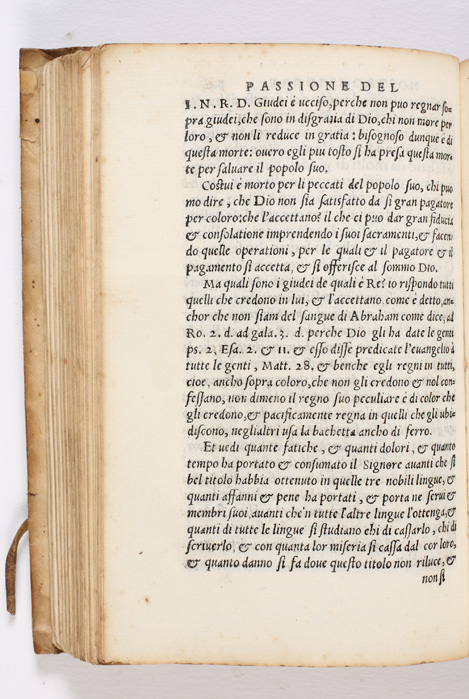 PASSIONE DEL
I. N. R. D. Giudei è ucciso, perche non puo regnar so-
pra giudei, che sono in disgratia di Dio, chi non more per
loro, & non li reduce in gratia: bisognoso dunque è di
questa morte: overo egli piu tosto si ha presa questa mor-
te per salvare il popolo suo.
Costui è morto per li peccati del popolo suo, chi puo
mo dire, che Dio non sia satisfatto da si gran pagatore
per coloro: che l'accettano? il che ci puo dar gran fiducia
& consolatione imprendendo i suoi sacramenti, & facen-
do quelle operationi, per le quali & il pagatore & il
pagamento si accetta, & si offerisce al sommo Dio.
Ma quali sono i giudei de quali è Re? io rispondo tutti
quelli che credono in lui, & l'accettano, come è detto, an-
chor che non siam del sangue di Abraham come dice, al
Ro. 2. d. ad gala. 3. d. perche Dio gli ha date le genti
ps. 2, Esa. 2. & 11. & esso disse predicate l'evangelio à
tutte le genti, Matt. 28. & benche egli regni in tutti,
cioe, ancho sopra coloro, che non gli credono & nol con-
fessano, non dimeno il regno suo peculiare è di color che
gli credono, & pacificamente regna in quelli che gli ubi-
discono, negli altri usa la bachetta ancho di ferro.
Et uedi quante fatiche, & quanti dolori, & quanto
tempo ha portato & consumato il Signore avanti che si
bel titolo habbia ottenuto in quelle tre nobili lingue, &
quanti affanni & pene ha portati, & porta ne servi &
membri suoi, avanti che'n tutte l'altre lingue l'ottenga, &
quanti di tutte le lingue si studiano chi di cassarlo, chi di
scriverlo, & con quanta lor miseria si cassa dal cor loro,
& quanto danno si fa dove questo titolo non riluce, &
non si